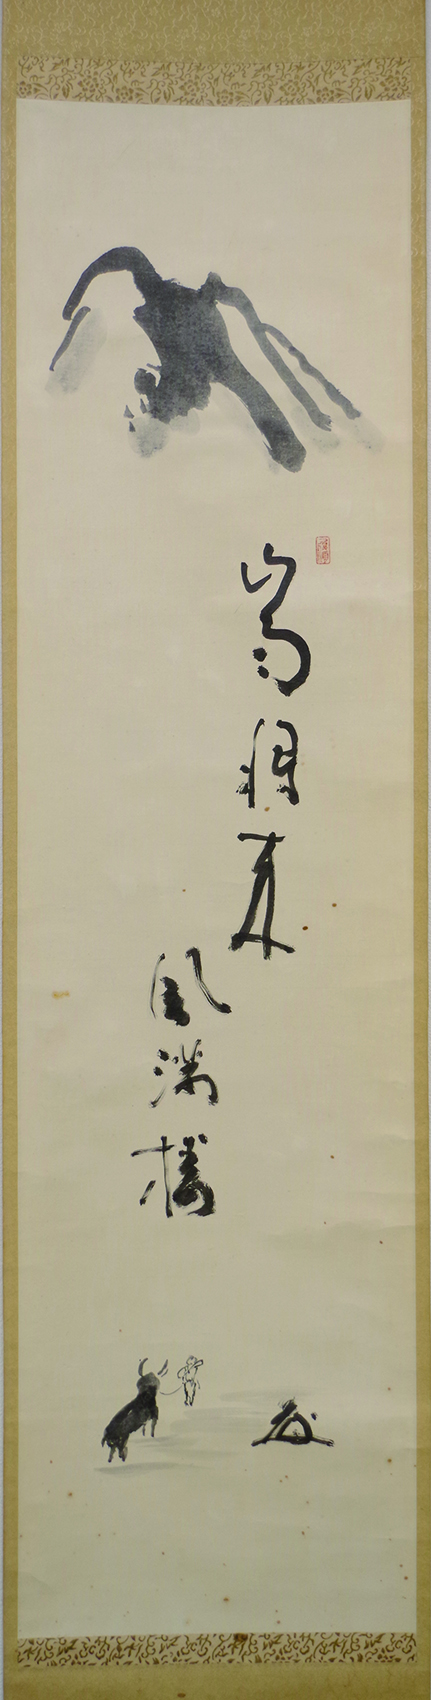 山雨将来
風満楼